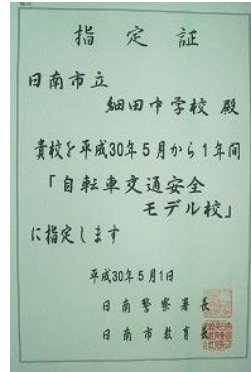 指定証
日南市立
細田中学校 殿
貴校を平成30年5月から1年間
「自転車交通安全
モデル校」
に指定します
平成30年5月1日
日南警察署長
日南市教育長